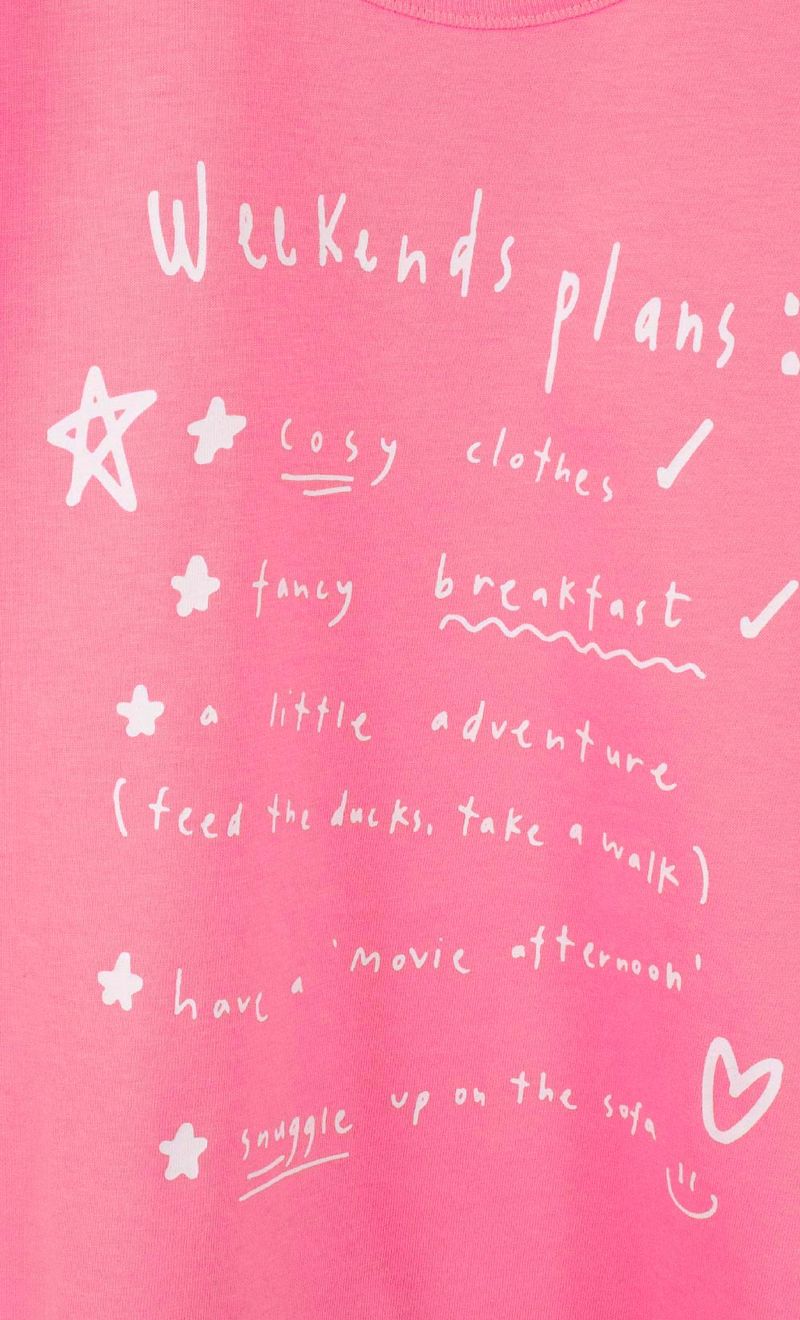 Weekends plans:
cosy clothes ✓
fancy breakfast ✓
a little adventure
(feed the ducks, take a walk)
have a 'movie afternoon'
snuggle up on the sofa